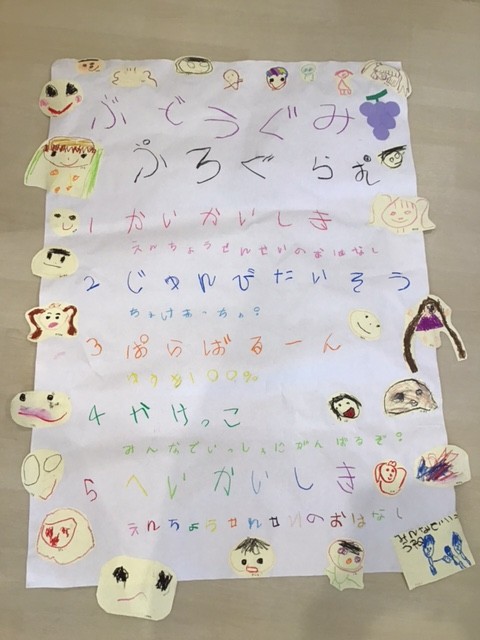 ぶどうぐみ
ぷろぐらむ
1 かいかいしき
えんちょうせんせいのおはなし
2 じゅんびたいそう
3 ぱらばるーん
ゆうき100%
4 かけっこ
みんなでいっしょにがんばるぞ!
5 へいかいしき
えんちょうせんせいのおはなし